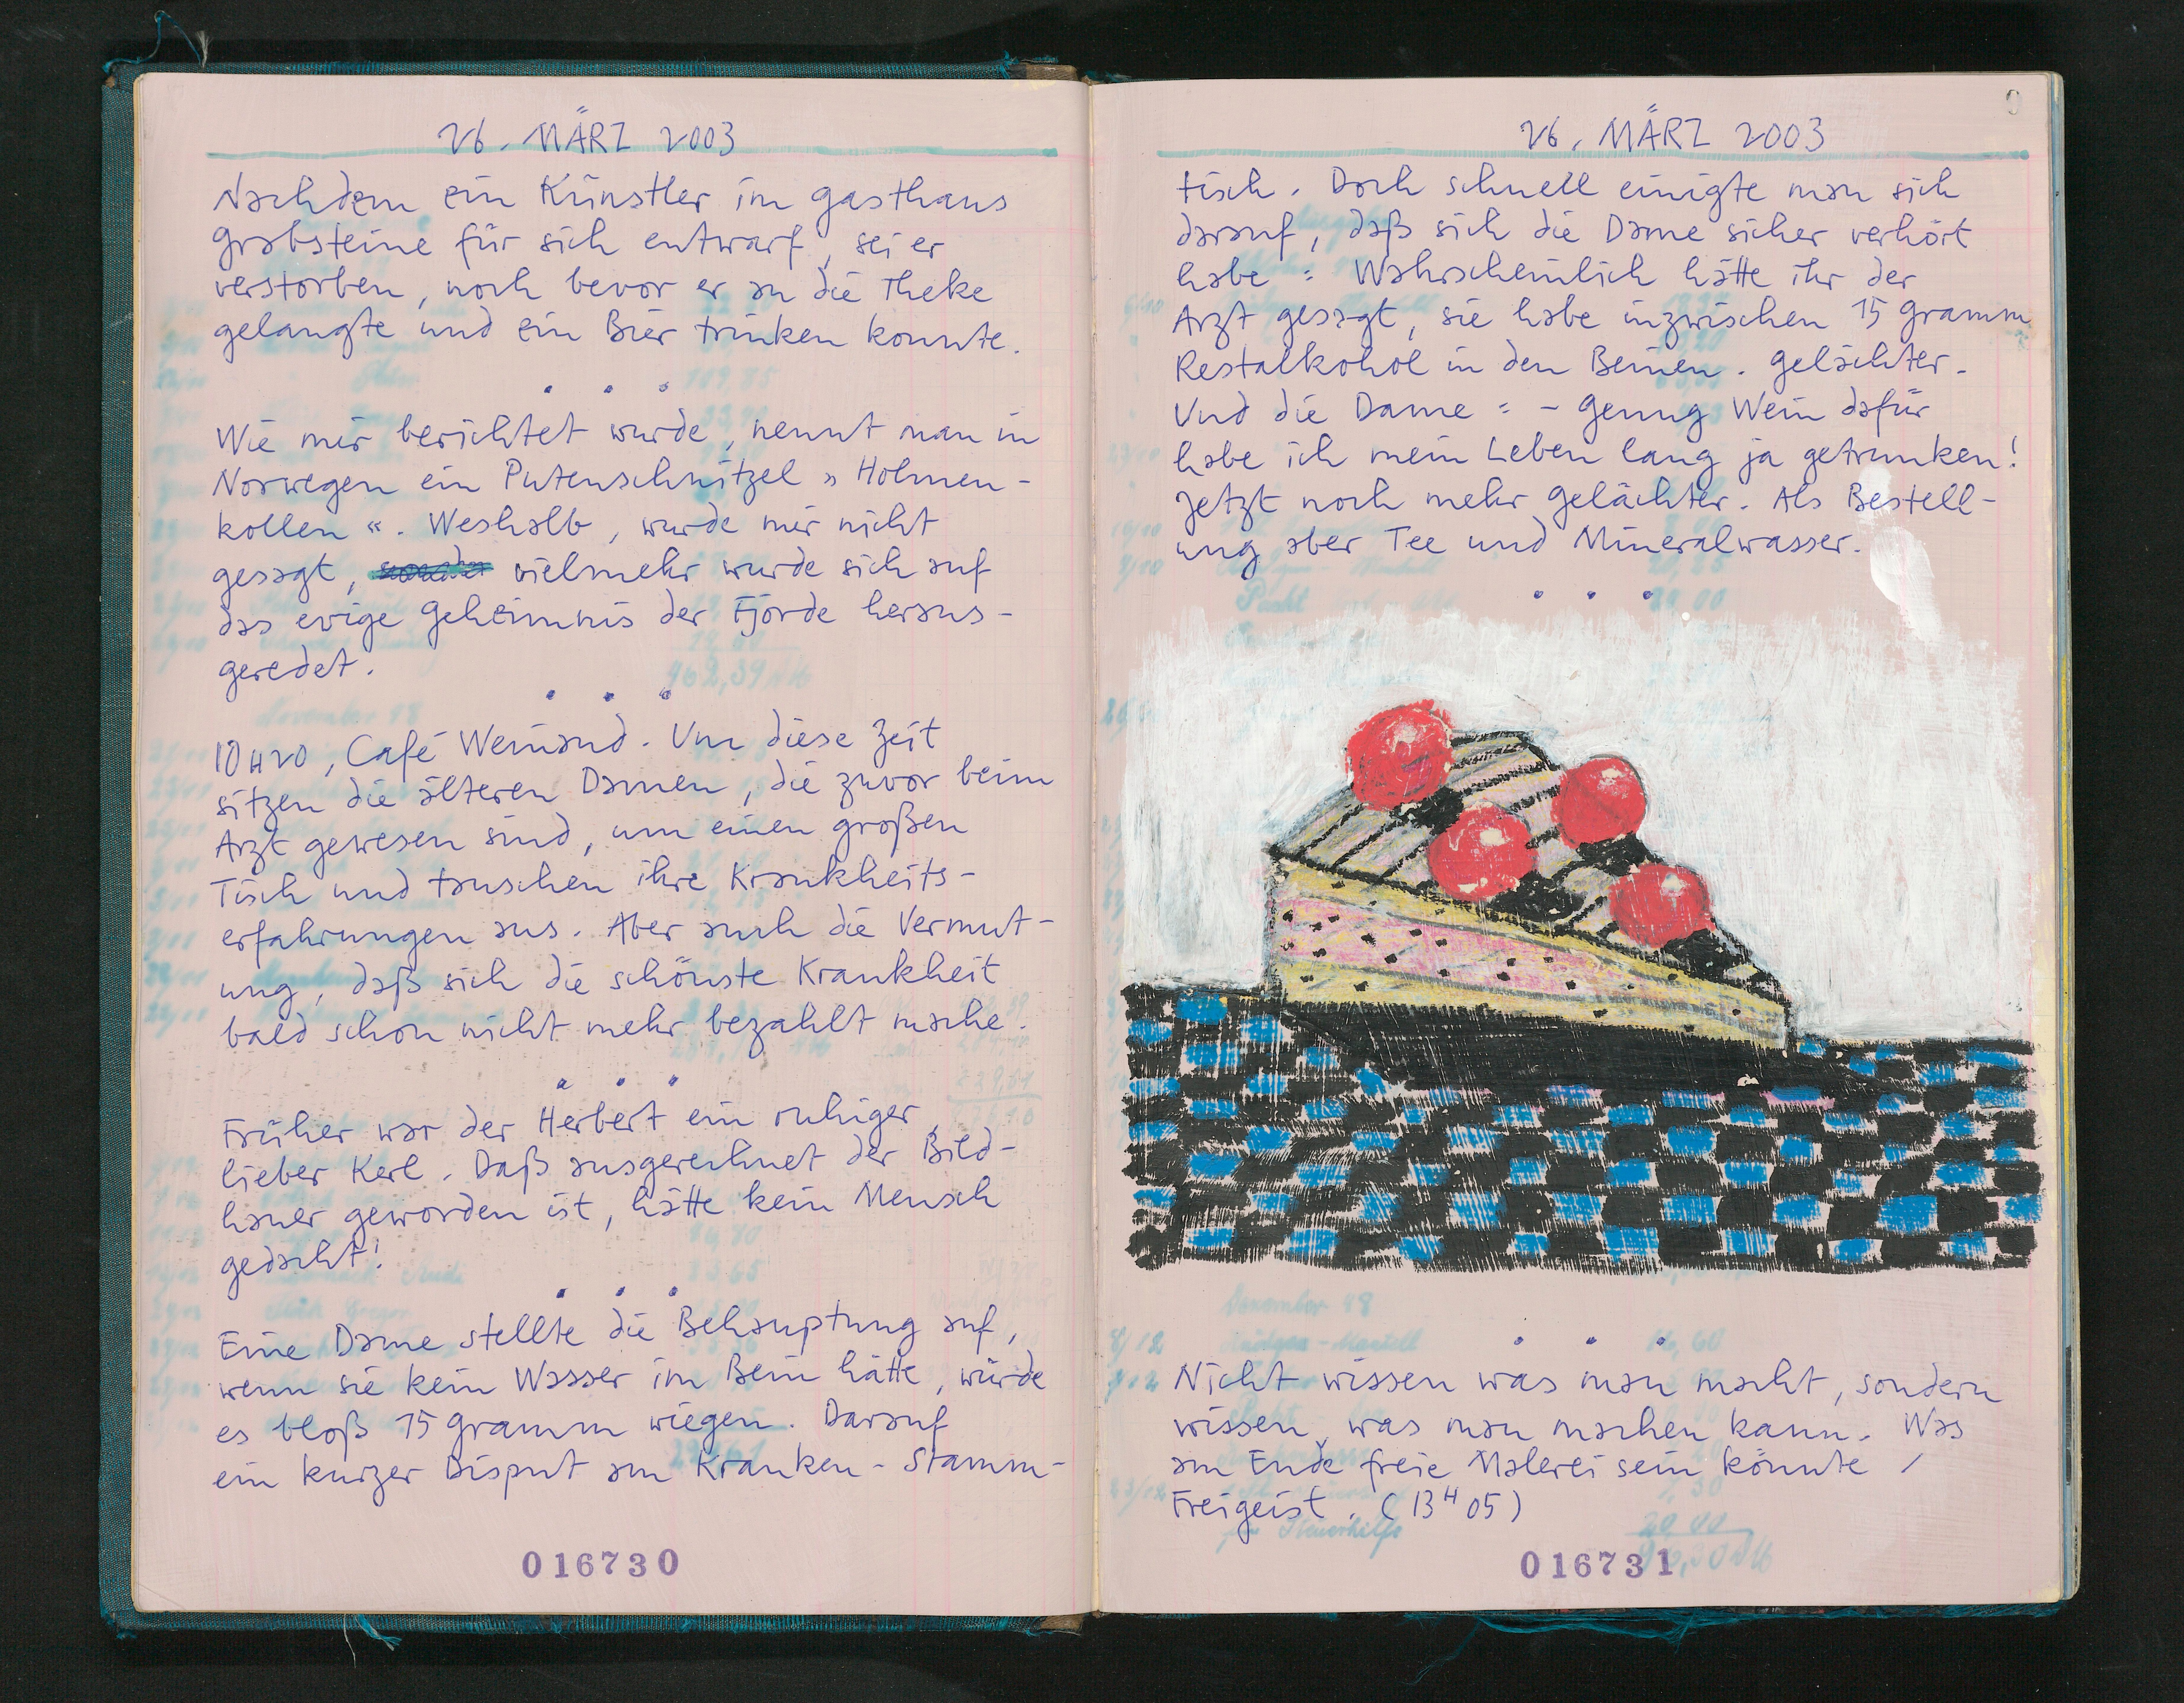 26. MÄRZ 2003
Nachdem ein Künstler im Gasthaus
Grabsteine für sich entwarf, sei er
verstorben, noch bevor er an die Theke
gelangte und ein Bier trinken konnte.
. . .
Wie mir berichtet wurde, nennt man in
Norwegen ein Putenschnitzel »Holmen-
kollen«. Weshalb, wurde mir nicht
gesagt, vielmehr wurde sich auf
das ewige Geheimnis der Fjorde heraus-
geredet.
. . .
10H20, Café Weinand. Um diese Zeit
sitzen die älteren Damen, die zuvor beim
Arzt gewesen sind, um einen großen
Tisch und tauschen ihre Krankheits-
erfahrungen aus. Aber auch die Vermut-
ung, daß sich die schönste Krankheit
bald schon nicht mehr bezahlt mache.
. . .
Früher war der Herbert ein ruhiger,
lieber Kerl. Daß ausgerechnet der Bild-
hauer geworden ist, hätte kein Mensch
gedacht!
. . .
Eine Dame stellte die Behauptung auf,
wenn sie kein Wasser im Bein hätte, würde
es bloß 15 Gramm wiegen. Darauf
ein kurzer Disput am Kranken-Stamm-
016730
26. MÄRZ 2003
tisch. Doch schnell einigte man sich
darauf, daß sich die Dame sicher verhört
habe: Wahrscheinlich hätte ihr der
Arzt gesagt, sie habe inzwischen 15 Gramm
Restalkohol in den Beinen. Gelächter.
Und die Dame: – Genug Wein dafür
habe ich mein Leben lang ja getrunken!
Jetzt noch mehr Gelächter. Als Bestell-
ung aber Tee und Mineralwasser.
. . .
. . .
Nicht wissen was man macht, sondern
wissen, was man machen kann. Was
am Ende freie Malerei sein könnte /
Freigeist. (13H05)
016731